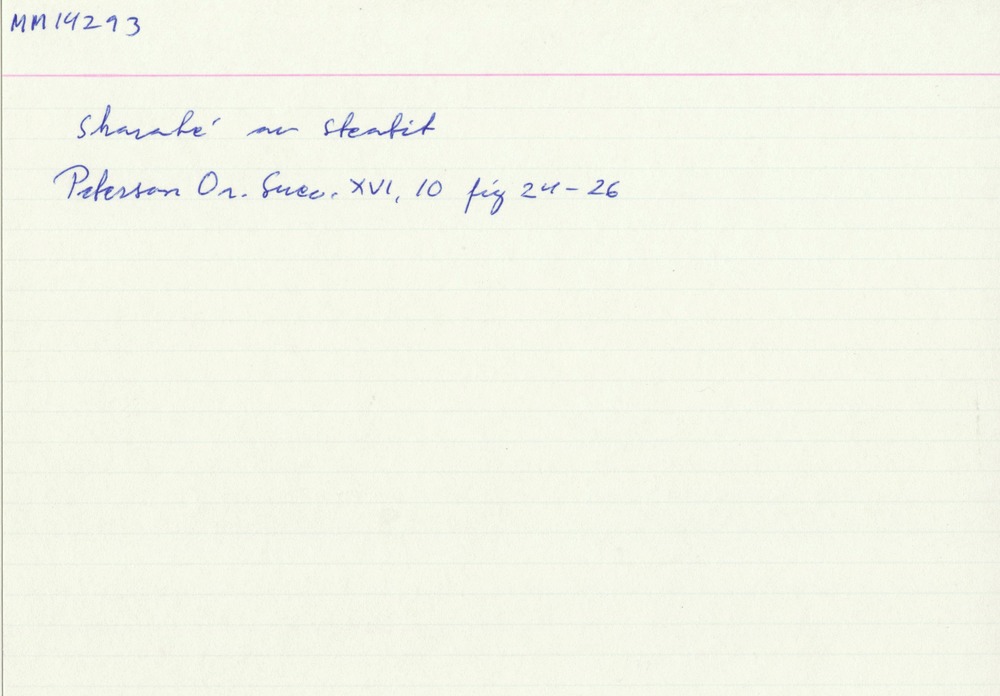 MM14293
Skarabé av steatit
Peterson Or. Suec. XVI, 10 fig 24-26